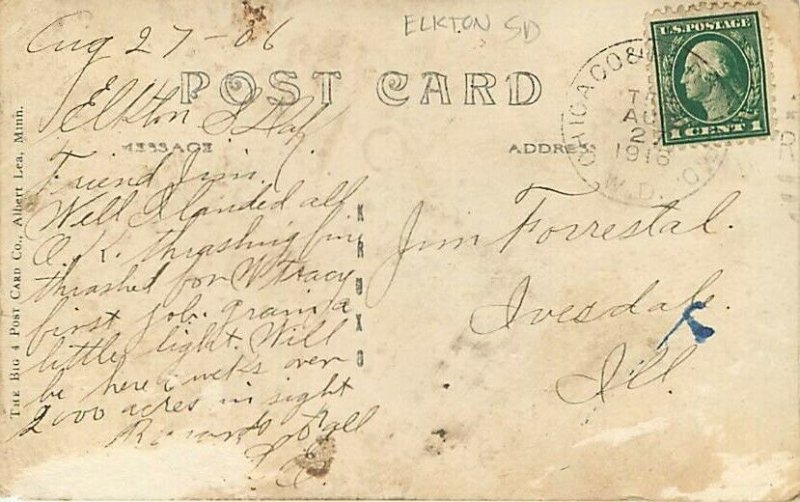 ELKTON SD
Aug 27-06
POST CARD
Elkton S Dak
MESSAGE
Friend Jim,
Well I landed all
O. K. thrashing fine
thrashed for Tracy
first job. grain a
little light. Will
be here 6 weeks over
2000 acres in sight
all
ADDRESS
Jim Forrestal.
Ivesdale.
Ill.
KRUXO
THE BIG 4 POST CARD CO., Albert Lea, Minn.
U.S. POSTAGE
1 CENT 1
CHICAGO &
AU
2
1916
W.D.